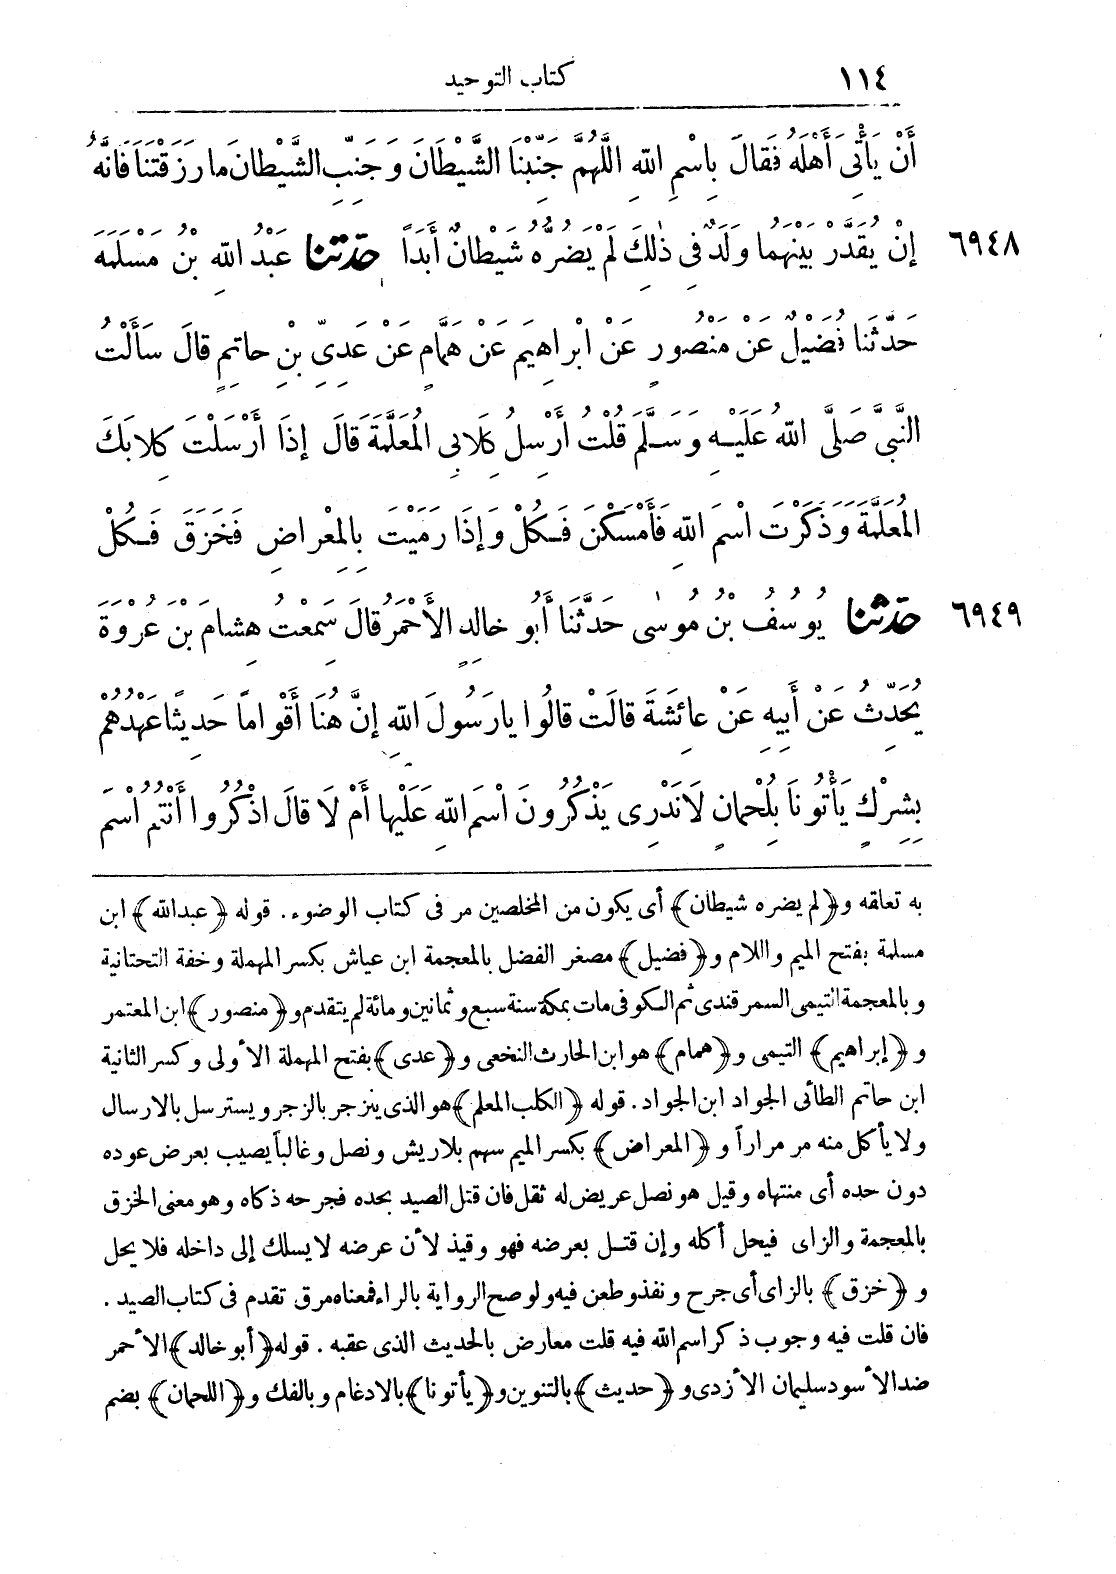 ١١٤ كتاب التوحيد
أَنْ يَأْتِيَ أَهْلَهُ فَقَالَ بِاسْمِ اللّٰهِ اللَّهُمَّ جَنِّبْنَا الشَّيْطَانَ وَجَنِّبِ الشَّيْطَانَ مَا رَزَقْتَنَا فَانَّهُ
٦٩٤٨ إِنْ يُقَدَّرْ بَيْنَهُمَا وَلَدٌ فِى ذٰلِكَ لَمْ يَضُرُّهُ شَيْطَانٌ أَبَدًا حَدَّثَنَا عَبْدُ اللهِ بْنُ مَسْلَمَةَ
حَدَّثَنَا فُضَيْلٌ عَنْ مَنْصُورٍ عَنْ ابْرَاهِيمَ عَنْ هَمَّامٍ عَنْ عَدِىِّ بْنِ حَاتِمٍ قَالَ سَأَلْتُ
النَّبِىَّ صَلَّى اللّٰهُ عَلَيْهِ وَسَلَّمَ قُلْتُ أُرْسِلُ كِلَابِى الْمُعَلَّمَةَ قَالَ إِذَا أَرْسَلْتَ كِلَابَكَ
الْمُعَلَّمَةَ وَذَكَرْتَ اسْمَ اللّٰهِ فَأَمْسَكْنَ فَكُلْ وَإِذَا رَمَيْتَ بِالْمِعْرَاضِ فَخَزَقَ فَكُلْ
٦٩٤٩ حَدَّثَنَا يُوسُفُ بْنُ مُوسٰى حَدَّثَنَا أَبُو خَالِدٍ الأَحْمَرُ قَالَ سَمِعْتُ هِشَامَ بْنَ عُرْوَةَ
يُحَدِّثُ عَنْ أَبِيهِ عَنْ عَائِشَةَ قَالَتْ قَالُوا يَارَسُولَ اللّٰهِ إِنَّ هُنَا أَقْوَامًا حَدِيثًا عَهْدُهُمْ
بِشِرْكٍ يَأْتُونَا بِلُحْمَانٍ لَانَدْرِى يَذْكُرُونَ اسْمَ اللّٰهِ عَلَيْهَا أَمْ لَا قَالَ اذْكُرُوا أَنْتُمُ اسْمَ
به تعلقه و﴿لم يضره شيطان﴾ أى يكون من المخلصين مر فى كتاب الوضوء. قوله ﴿عبدالله﴾ ابن
مسلمة بفتح الميم واللام و﴿فضيل﴾ مصغر الفضل بالمعجمة ابن عياش بكسر المهملة وخفة التحتانية
وبالمعجمة التيمى السمرقندى ثم الكوفى مات بمكة سنة سبع وثمانين ومائة لم يتقدم و﴿منصور﴾ ابن المعتمر
و﴿إبراهيم﴾ التيمى و﴿همام﴾ هو ابن الحارث النخعى و﴿عدى﴾ بفتح المهملة الأولى وكسر الثانية
ابن حاتم الطائى الجواد ابن الجواد. قوله ﴿الكلب المعلم﴾ هو الذى ينزجر بالزجر ويسترسل بالارسال
ولا يأكل منه مر مراراً و﴿المعراض﴾ بكسر الميم سهم بلاريش ونصل وغالباً يصيب بعرض عوده
دون حده أى منتهاه وقيل هو نصل عريض له ثقل فان قتل الصيد بحده فجرحه ذكاه وهو معنى الخزق
بالمعجمة والزاى فيحل أكله وإن قتل بعرضه فهو وقيذ لأن عرضه لايسلك إلى داخله فلا يحل
و﴿خزق﴾ بالزاى أى جرح ونفذ وطعن فيه ولو صح الرواية بالراء فمعناه مرق تقدم فى كتاب الصيد.
فان قلت فيه وجوب ذكر اسم الله فيه قلت معارض بالحديث الذى عقبه. قوله ﴿أبو خالد﴾ الأحمر
ضد الأسود سليمان الأزدى و﴿حديث﴾ بالتنوين و﴿يأتونا﴾ بالادغام وبالفك و﴿اللحمان﴾ بضم